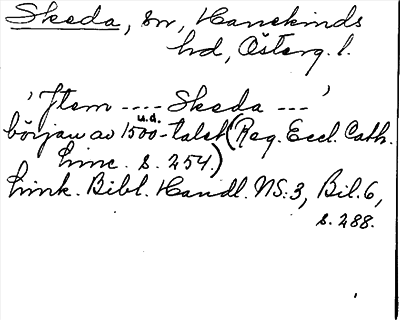 Skeda, sn, Hanekinds
hd, Österg. l.
'Jtem ---- Skeda --- '
u.d.
början av 1500-talet (Reg. Eccl. Cath.
Linc. s. 254.)
Link. Bibl. Handl. NS:3, Bil. 6,
s. 288.